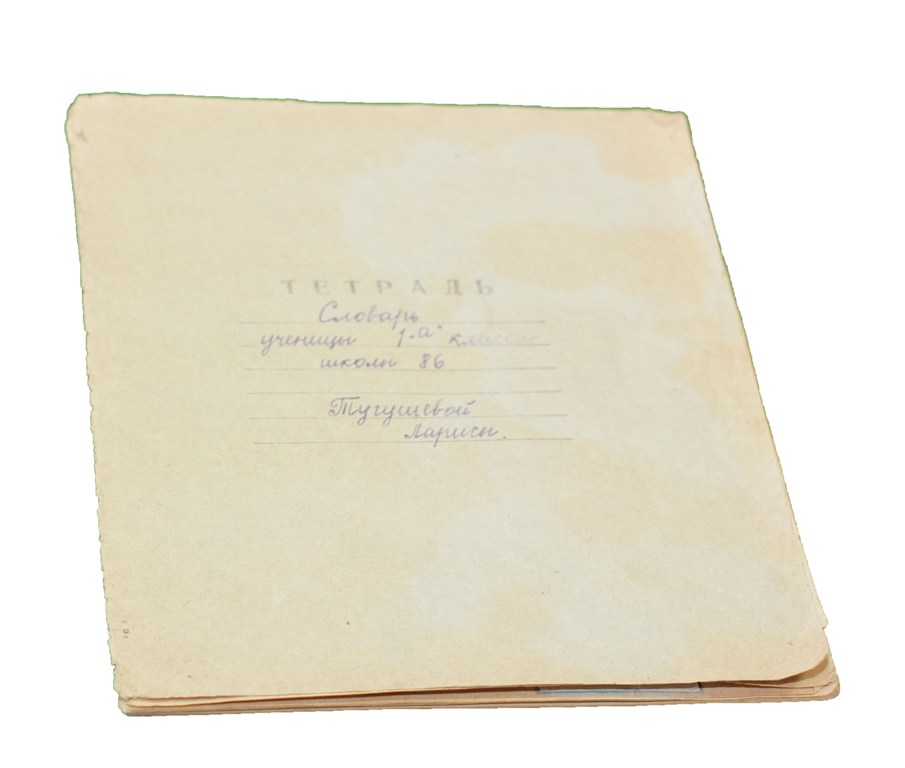 ТЕТРАДЬ
Словарь
ученицы 1 "а" класса
школы 86
Тугушевой
Ларисы.